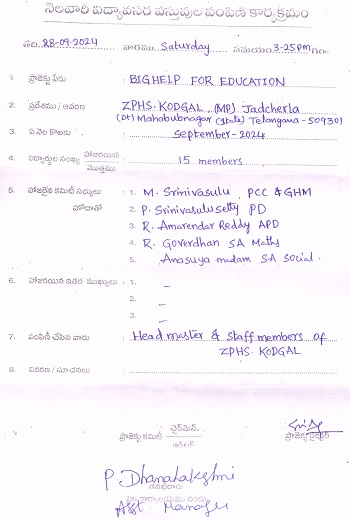 నెలవారీ విద్యావసర వస్తువుల పంపిణి కార్యక్రమం
తేది. 28-09-2024 వారము Saturday సమయం 3-25PM గం॥
1. ప్రాజెక్టు పేరు : BIGHELP FOR EDUCATION
2. ప్రదేశము / ఆవరణ : ZPHS. KODGAL, (MP) Jadcherla
(Dt) Mahabubnagar (State) Telangana - 509301
3. ఏ నెల కొఱకు : September - 2024
4. విద్యార్థుల సంఖ్య హాజరయిన / మొత్తము : 15 members
5. హాజరైన కమిటీ సభ్యులు : 1. M. Srinivasulu PCC & GHM
హోదాతో 2. P. Srinivasulu Setty PD
3. R. Amarendar Reddy APD
4. R. Goverdhan SA Maths
5. Anasuya madam SA Social.
6. హాజరయిన ఇతర ముఖ్యులు : 1. –
2. –
3. –
7. పంపిణీ చేసిన వారు : Head master & staff members of
ZPHS. KODGAL
8. వివరణ / సూచనలు :
ప్రాజెక్టు కమిటీ ఛైర్మెన్.
ప్రాజెక్టు డైరెక్టర్
P. Dhanalakshmi
Asst Manager